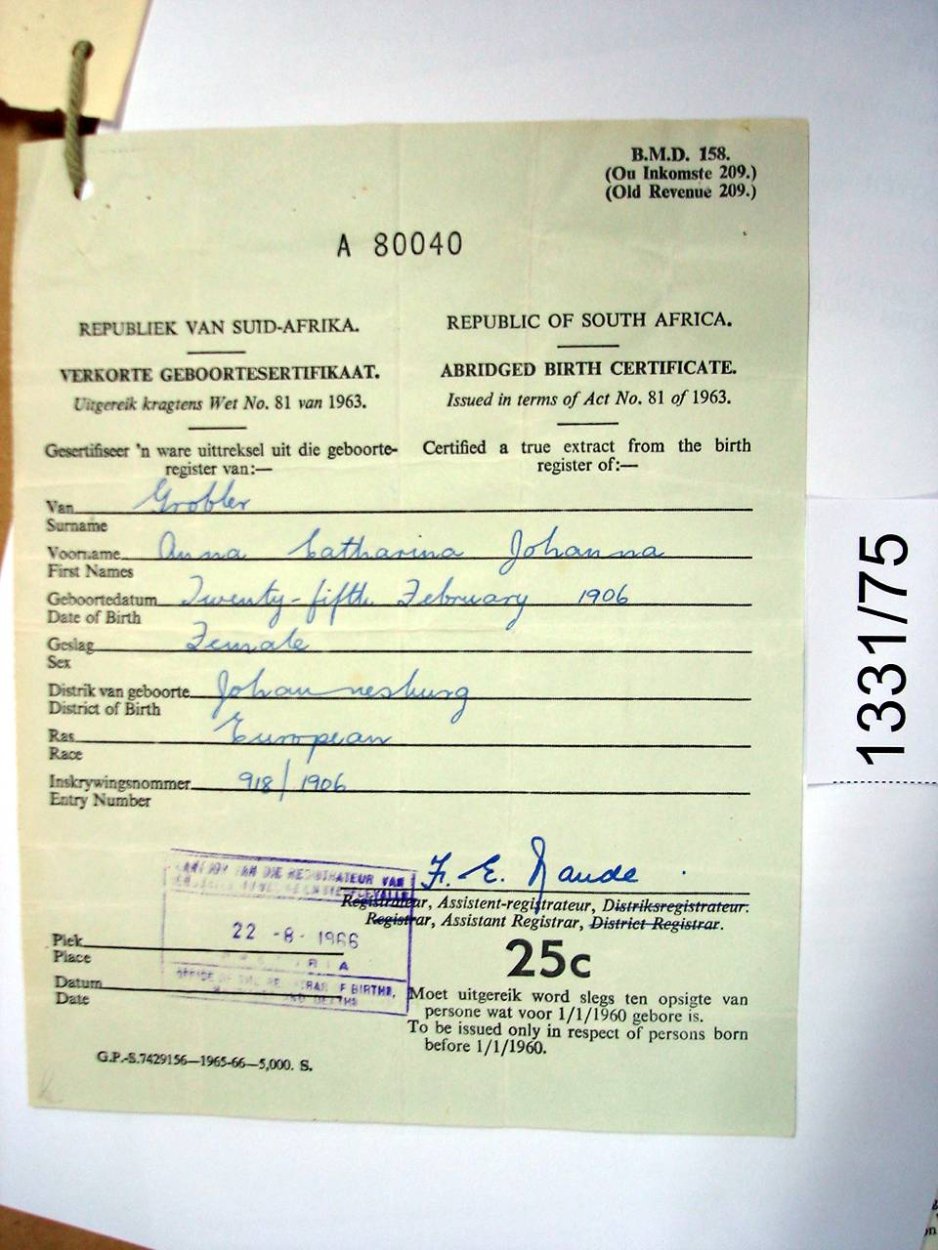 B.M.D. 158.
(Ou Inkomste 209.)
(Old Revenue 209.)
A 80040
REPUBLIEK VAN SUID-AFRIKA.
VERKORTE GEBOORTESERTIFIKAAT.
Uitgereik kragtens Wet No. 81 van 1963.
Gesertifiseer 'n ware uittreksel uit die geboorte-
register van:—
REPUBLIC OF SOUTH AFRICA.
ABRIDGED BIRTH CERTIFICATE.
Issued in terms of Act No. 81 of 1963.
Certified a true extract from the birth
register of:—
Van Grobler
Surname
Voorname Anna Catharina Johanna
First Names
Geboortedatum Twenty-fifth February 1906
Date of Birth
Geslag Female
Sex
Distrik van geboorte Johannesburg
District of Birth
Ras European
Race
Inskrywingsnommer 918/1906
Entry Number
F. E. Naude
Registrateur, Assistent-registrateur, Distriksregistrateur.
Registrar, Assistant Registrar, District Registrar.
VAN DIE REGISTRATEUR VAN
22 -8- 1966
OFFICE OF THE REGISTRAR OF BIRTHS,
AND DEATHS
Plek
Place
Datum
Date
25c
Moet uitgereik word slegs ten opsigte van
persone wat voor 1/1/1960 gebore is.
To be issued only in respect of persons born
before 1/1/1960.
G.P.-S.7429156—1965-66—5,000. S.
1331/75